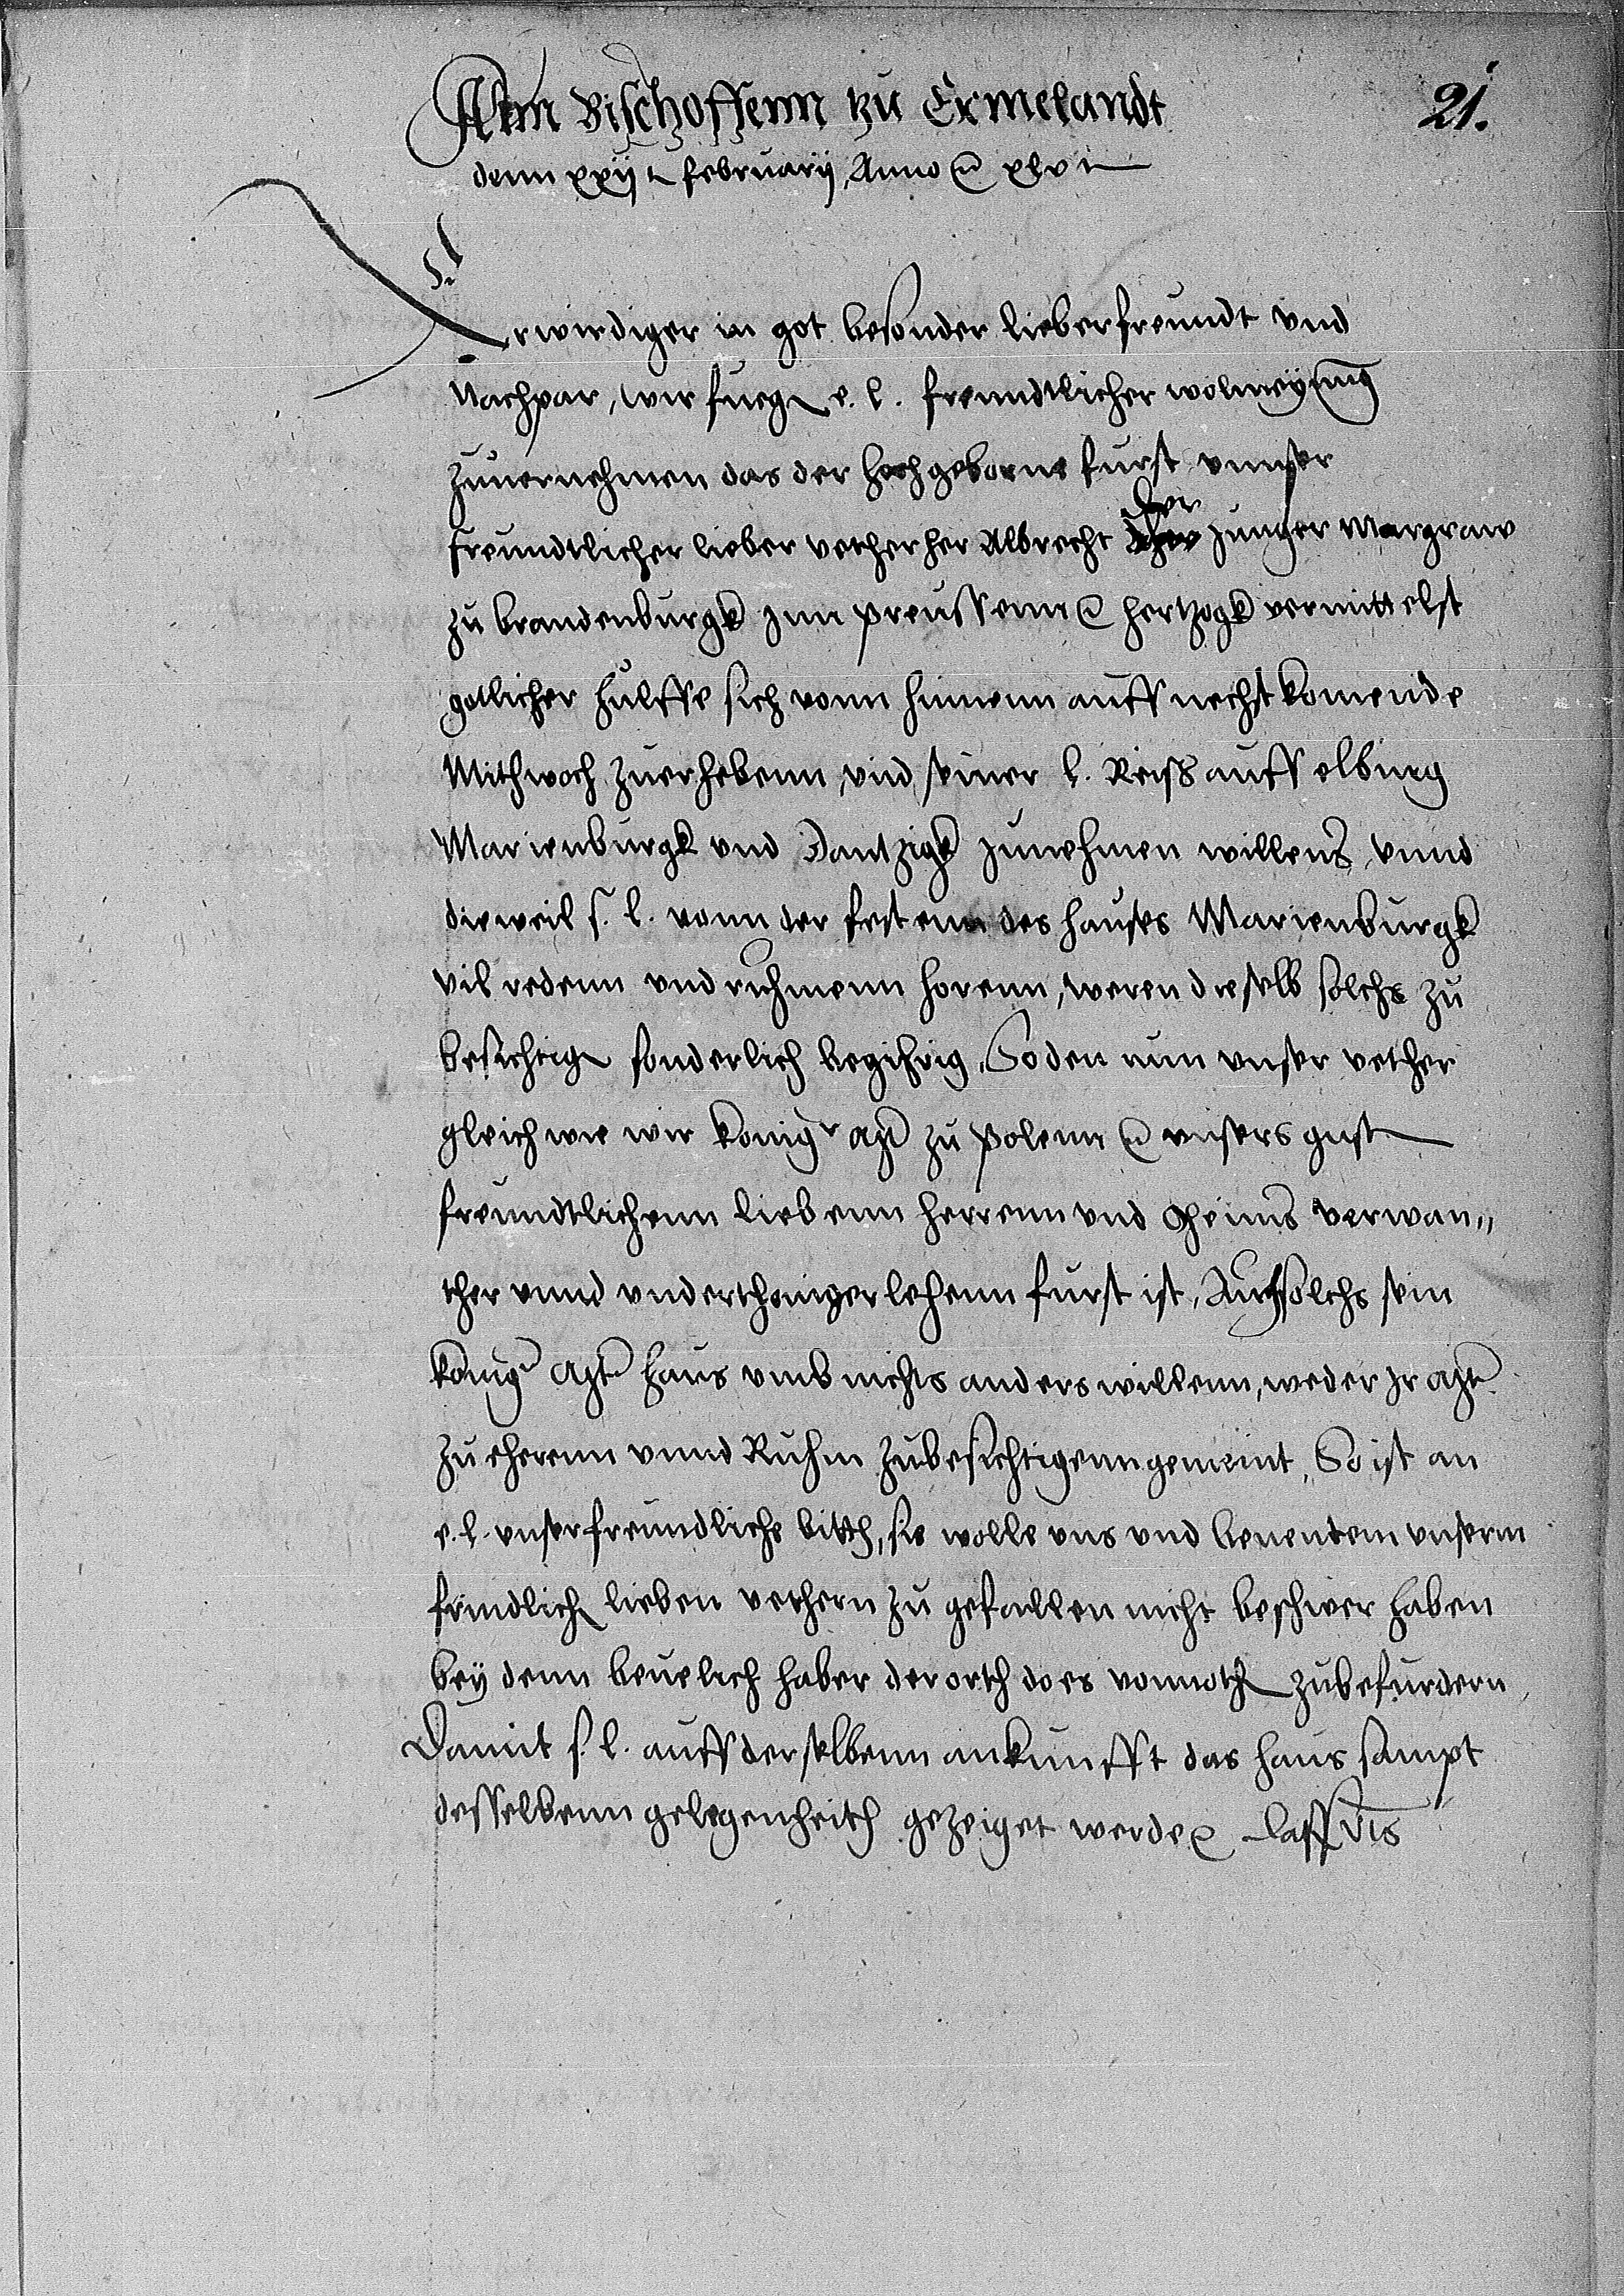 Ahm Bischoffenn zu Ermelandt
21.
denn xxiiten februarij Anno etc xlvten
Erwirdiger in got besonder lieber freundt vnd
Nachpar, wir fuegen e. l. freundtlicher wolmeynung
zuuernehmen das der hochgeborne furst vnnser
der
freundtlicher lieber vether her Albrecht Junger Margraw
zu brandenburgk Jnn preussenn etc hertzogk vermittelst
gotlicher hulffe sich vonn hinnenn auff nechstkomende
Mithwoch zuerhebenn, vnd seiner l. Reiss auff elbing
Marienburgk vnd Dantzigk zunehmen willens, vnnd
dieweil s. l. vonn der festenn des hauses Marienburgk
vil redenn vnd ruhmenn horenn, weren dieselb solchs zu
besichtigen sonderlich begihrig, So den nun vnser vether
gleich wie wir konigr Mt zu Polenn etc vnsers gnsten
freundtlichenn liebenn herrenn vnd Oheims verwan„
ther vnnd vnderthenniger lehenn furst ist, Auch solchs sein
konigr Mt haus vmb nichts anders willenn, weder Jr Mt
zu eherenn vnnd Ruhm zubesichtigenn gemeint, So ist an
e. l. vnser freundliche bitth, sie wolle vns vnd benentem vnserm
frindlichen lieben vethern zu gefallen nicht beschwer haben
bey denn beuelich haber der orth do es vonnothen zubefurdern,
Damit s. l. auff derselbenn ankunfft das haus sampt
desselbenn gelegenheith gezeiget werde